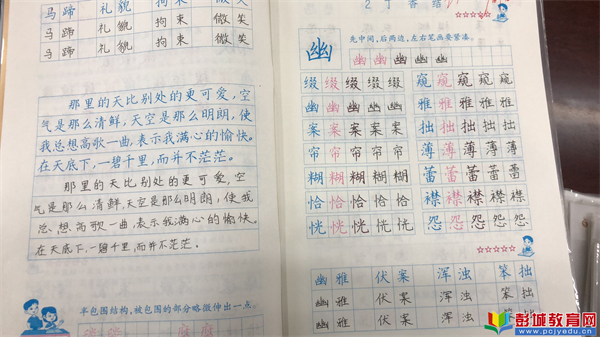 马蹄 礼貌 拘束 微笑
马蹄 礼貌 拘束 微笑
马蹄 礼貌 拘束 微笑
那里的天比别处的更可爱，空
气是那么清鲜，天空是那么明朗，使
我总想高歌一曲，表示我满心的愉快。
在天底下，一碧千里，而并不茫茫。
那里的天比别处的更可爱，空
气是那么清鲜，天空是那么明朗，使我
总想高歌一曲，表示我满心的愉快。
在天底下，一碧千里，而并不茫茫。
半包围结构，被包围的部分略微伸出一点。
2 丁香结
幽
先中间，后两边，左右笔画要紧凑。
幽 幽 幽 幽 幽
缀 缀 缀 缀 缀 窥 窥 窥 窥 窥
幽 幽 幽 幽 幽 雅 雅 雅 雅 雅
案 案 案 案 案 拙 拙 拙 拙 拙
帘 帘 帘 帘 帘 薄 薄 薄 薄 薄
糊 糊 糊 糊 糊 蕾 蕾 蕾 蕾 蕾
恰 恰 恰 恰 恰 襟 襟 襟 襟 襟
恍 恍 恍 恍 恍 怨 怨 怨 怨 怨
幽雅 伏案 浑浊 笨拙
幽雅 伏案 浑浊 笨拙
幽雅 伏案 浑浊 笨拙
彭城教育网
www.pcjyedu.cn